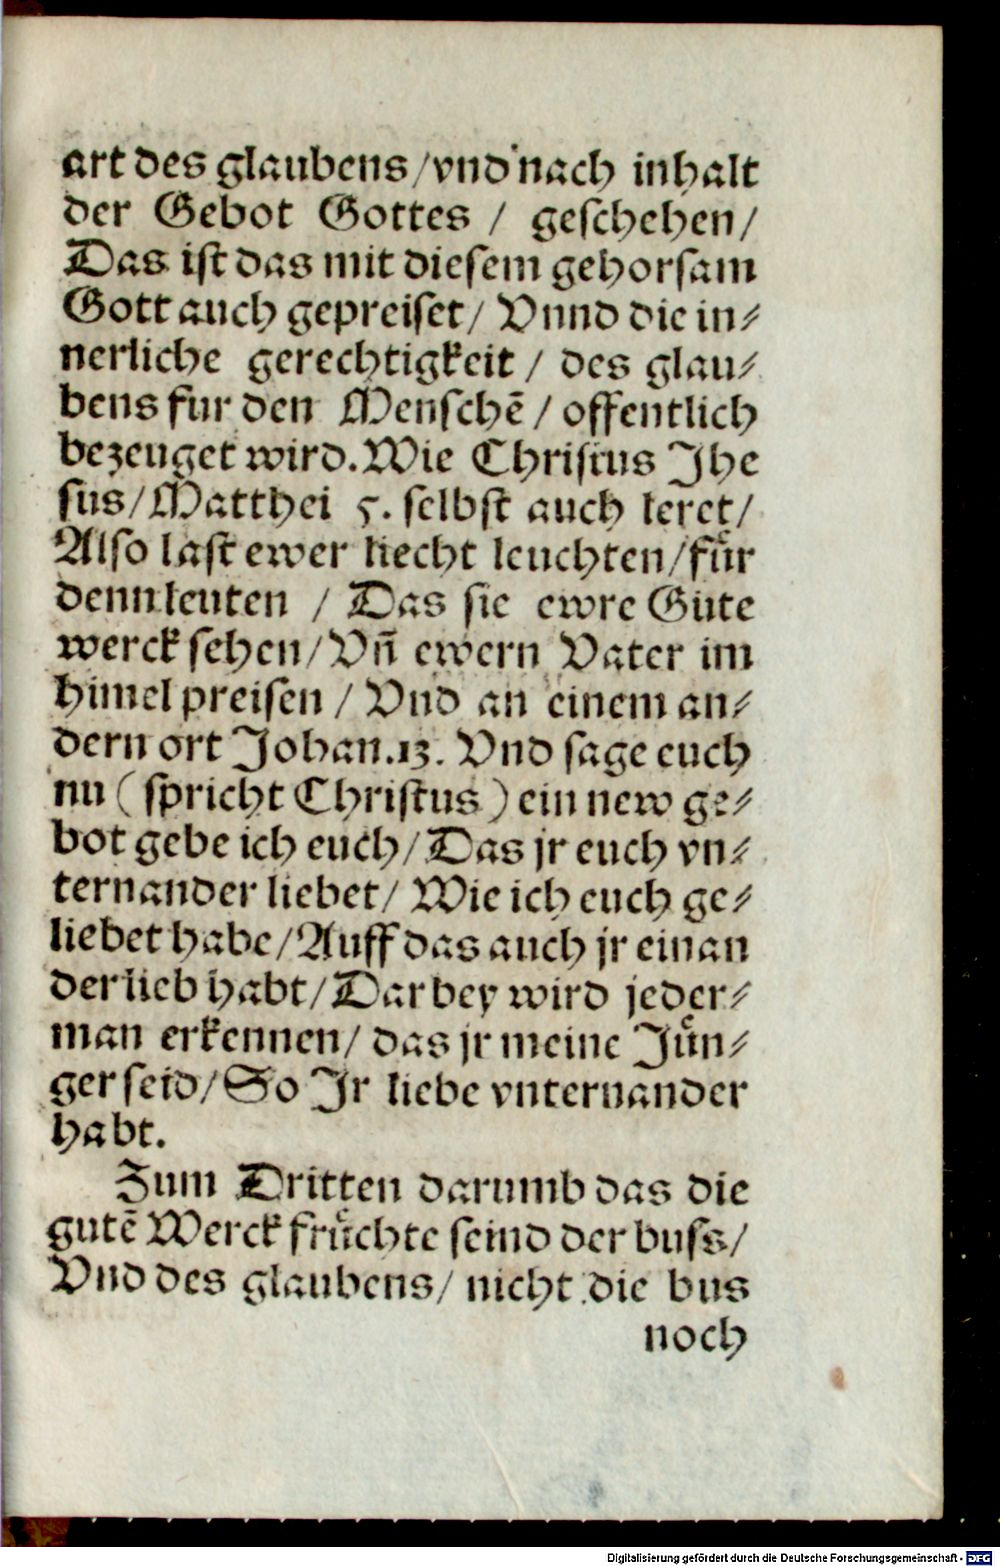 art des glaubens/vnd nach inhalt
der Gebot Gottes / geschehen/
Das ist das mit diesem gehorsam
Gott auch gepreiset/ Vnnd die in⸗
nerliche gerechtigkeit / des glau⸗
bens fur den Menschē / offentlich
bezeuget wird. Wie Christus Jhe
sus/Matthei 5. selbst auch leret/
Also last ewer liecht leuchten/fuͤr
denn leuten / Das sie ewre Gute
werck sehen/Vñ ewern Vater im
himel preisen / Vnd an einem an⸗
dern ort Johan.13. Vnd sage euch
nu (spricht Christus) ein new ge⸗
bot gebe ich euch/Das jr euch vn⸗
ternander liebet/ Wie ich euch ge⸗
liebet habe/Auff das auch jr einan
der lieb habt/Dar bey wird jeder⸗
man erkennen/ das jr meine Juͤn⸗
ger seid/So Jr liebe vnternander
habt.
Zum Dritten darumb das die
gutē Werck fruͤchte seind der buss/
Vnd des glaubens/ nicht die bus
noch
Digitalisierung gefördert durch die Deutsche Forschungsgemeinschaft - DFG